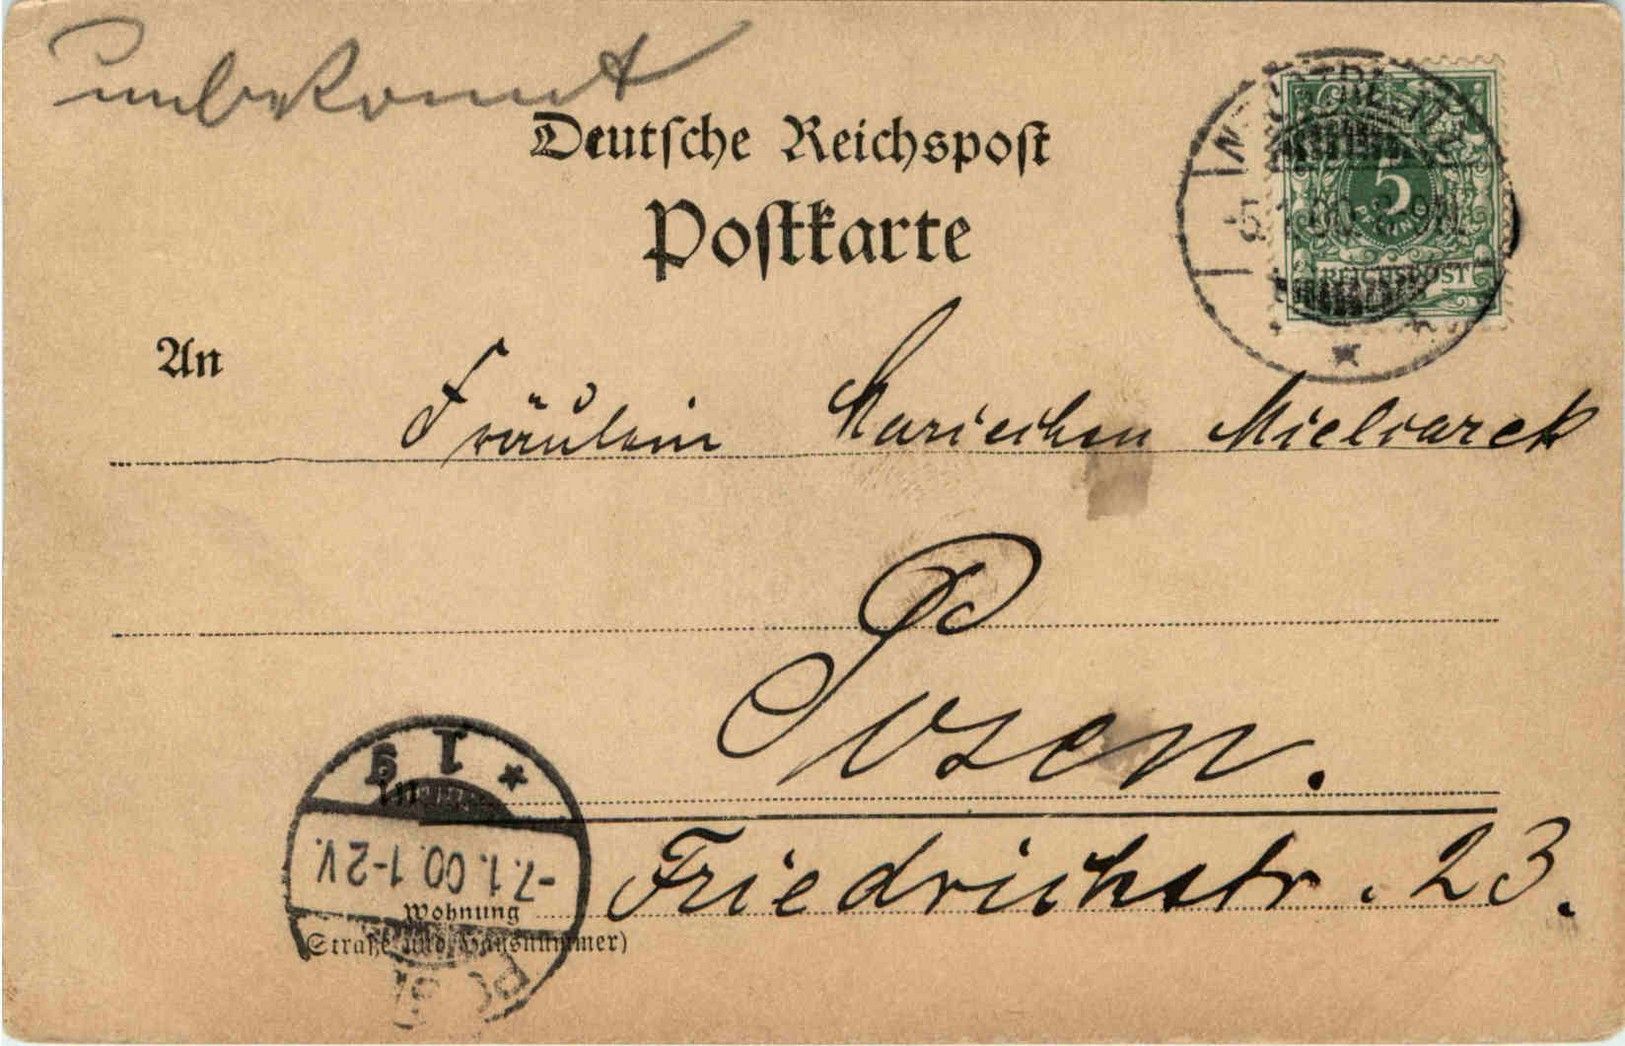 unbekannt
Deutsche Reichspost
Postkarte
5
PFENNIG
REICHSPOST
An
Fräulein Mariechen Mielcarek
Posen.
in
Friedrichstr. 23.
Wohnung
(Straße und Hausnummer)
* 1 g
-7.1.00.1-2V.
POSEN